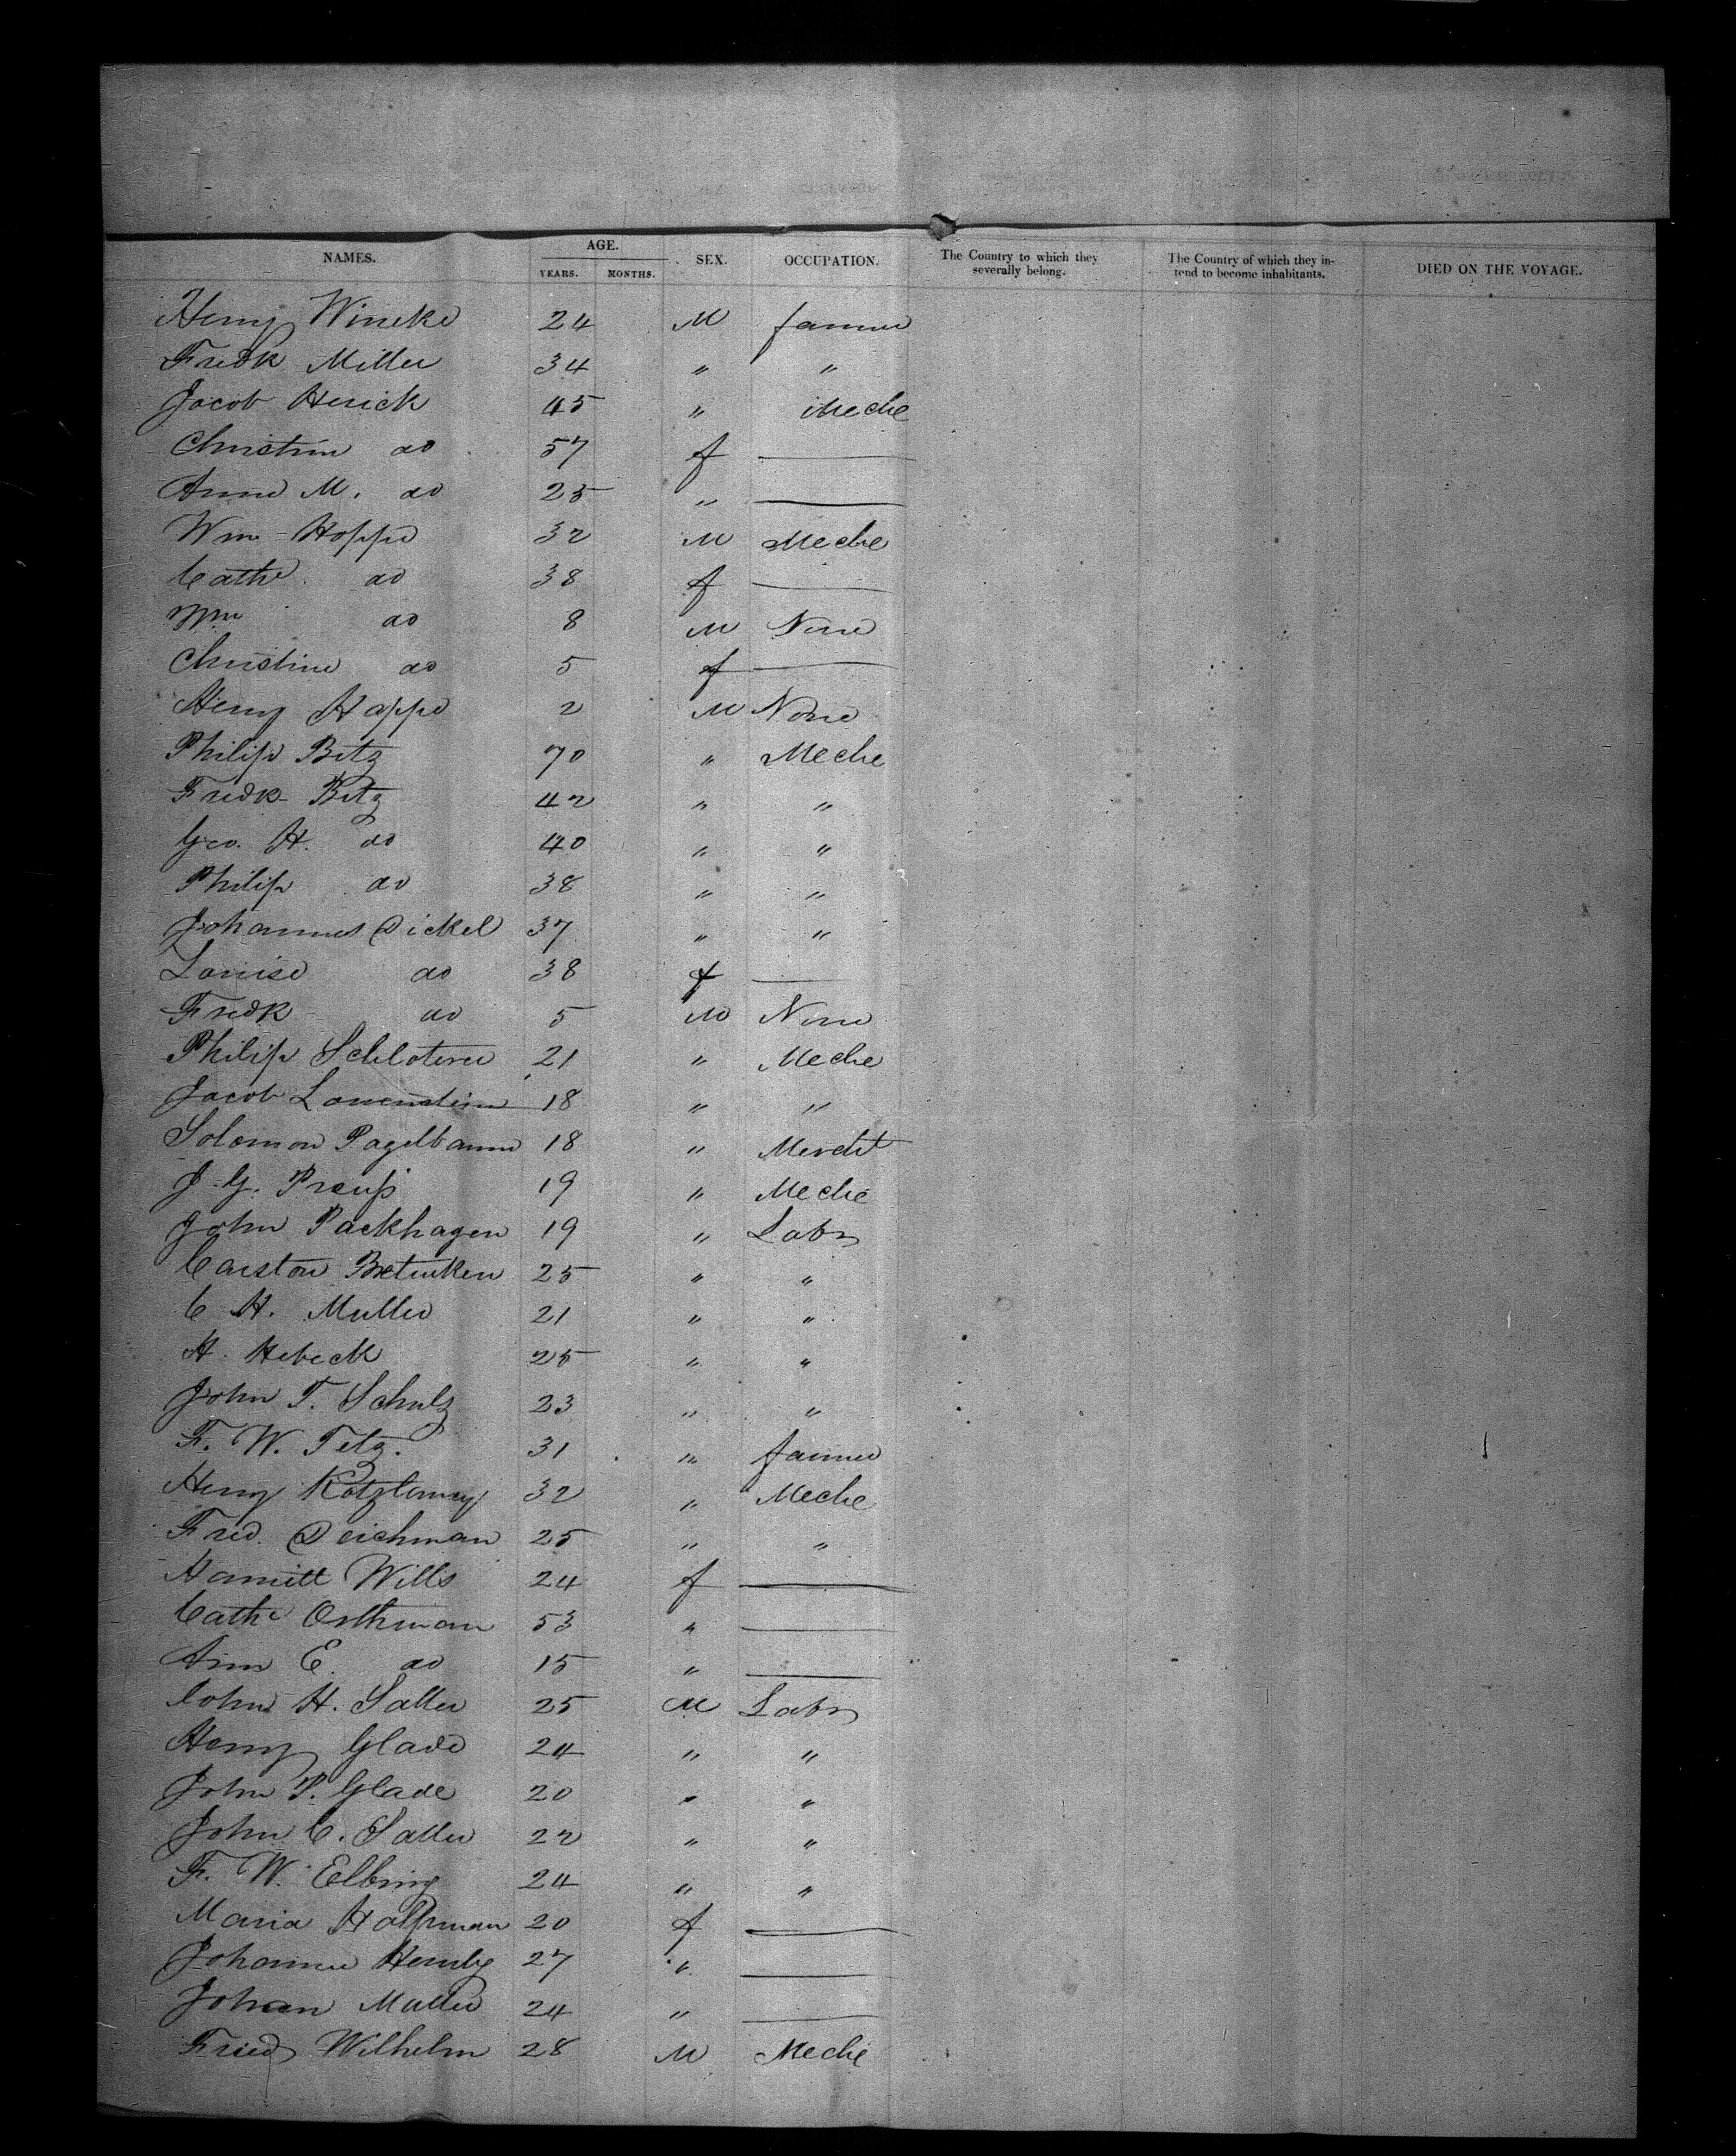 NAMES. AGE. YEARS. MONTHS. SEX. OCCUPATION. The Country to which they severally belong. The Country of which they intend to become inhabitants. DIED ON THE VOYAGE.
Henry Wineke 24 M farmer
Fredk Miller 34 " "
Jacob Herick 45 " Meche
Christin do 57 f —
Anne M. do 25 " —
Wm Hoppe 32 M Meche
Cathe. do 38 f —
Wm do 8 M None
Christine do 5 f —
Henry Happe 2 M None
Philip Betz 70 " Meche
Fredk Betz 42 " "
Geo. H. do 40 " "
Philip do 38 " "
Johannes Dickel 37 " "
Louise do 38 f —
Fredk do 5 M None
Philip 21 " Meche
Jacob Lauenstein 18 " "
Solomon Pagelbaum 18 " Mercht
J. G. Preuß 19 " Meche
John Packhagen 19 " Labr
Carston 25 " "
C H. Muller 21 " "
H. Hebeck 25 " "
John T. Schulz 23 " "
F. W. Tetz. 31 " farmer
Henry 32 " Meche
Fred. Deichman 25 " "
Harriett Wills 24 f —
Cathe Orthman 53 " —
Ann E. do 15 " —
John H. Saller 25 M Labr
Henry Glade 24 " "
John P. Glade 20 " "
John C. Saller 22 " "
F. W. Elbing 24 " "
Maria 20 f —
Johanne 27 " —
Johan Muller 24 " —
Fried Wilhelm 28 M Meche